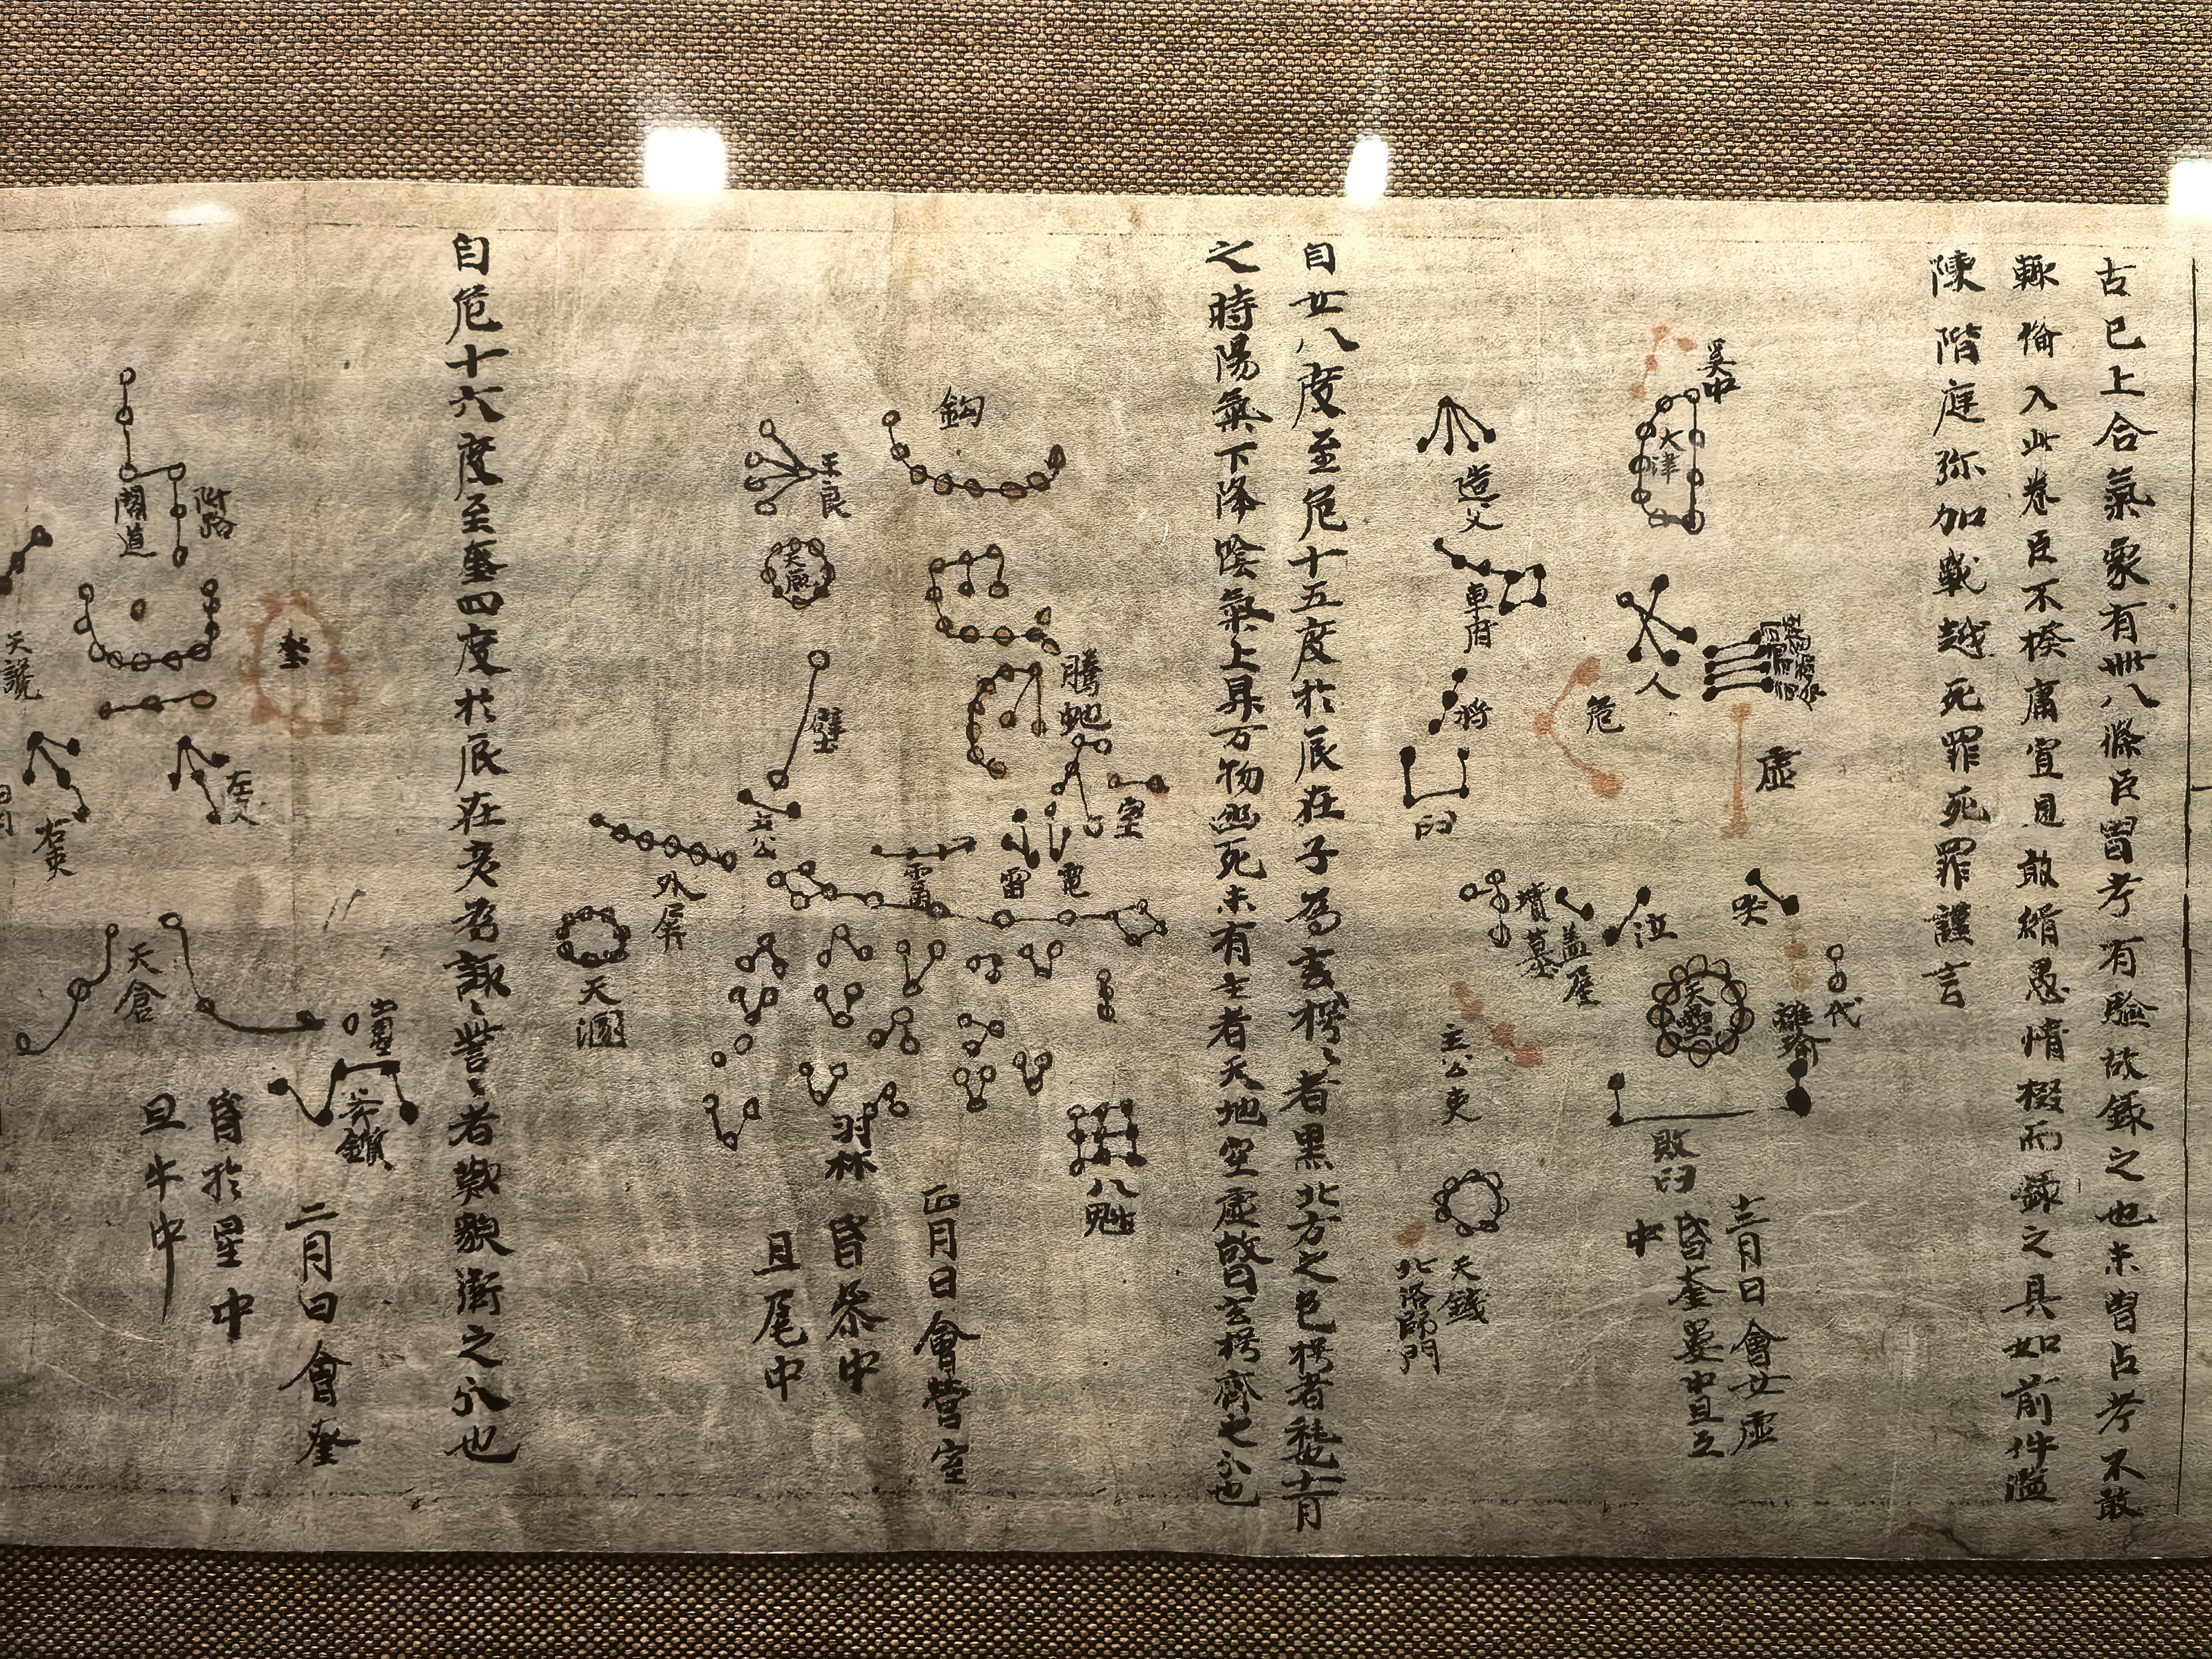 古已上合氣象有卌八條臣曾考有驗故錄之也未曾占考不敢
輒備入此卷臣不揆庸冝見敢緝愚情掇而錄之具如前件濫
陳階庭弥加戰越死罪死罪謹言
奚仲
天津
人
虛
危
哭
泣
代
離瑜
天壘
敗臼
十二月日會女虛
昏奎婁中旦互
中
造父
車府
杵
臼
蓋屋
墳墓
主公吏
天錢
北落師門
自女八度至危十五度於辰在子為玄枵〻者黑北方之色枵者秏十一月
之時陽氣下降陰氣上昇万物幽死未有生者天地空虛故曰玄枵齊之分也
鈎
王良
天廄
騰虵
室
壁
土公
電
雷
雷
外屏
天溷
羽林
八魁
正月日會營室
昏參中
旦尾中
自危十六度至奎四度於辰在亥為諏〻訾〻者歎貌衛之分也
附路
閣道
奎
左人
右吏
天倉
土空
斧鑕
二月日會奎
昏於星中
旦牛中